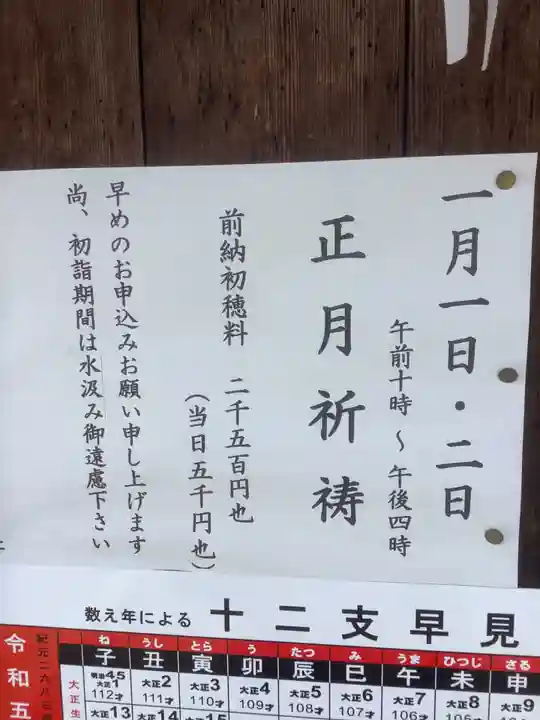 一月一日・二日
午前十時 〜 午後四時
正月祈祷
前納初穂料 二千五百円也
（当日五千円也）
早めのお申込みお願い申し上げます
尚、初詣期間は水汲み御遠慮下さい
数え年による 十二支早見
令和五
紀元二六八三
ね うし とら う たつ み うま ひつじ さる
子 丑 寅 卯 辰 巳 午 未 申
大正生
明治45 大正1 大正2 大正3 大正4 大正5 大正6 大正7 大正8 大正9
112才 111才 110才 109才 108才 107才 106才
大正13 大正14